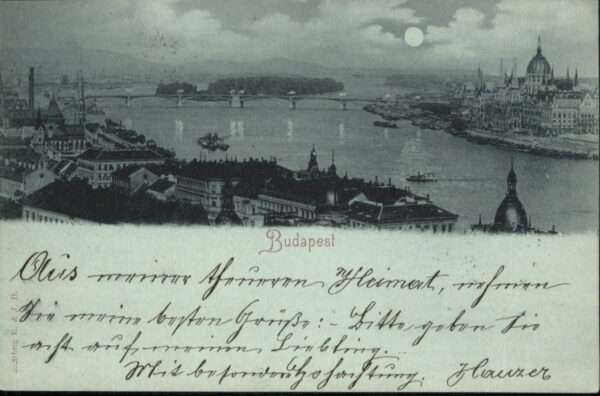 Budapest
Aus meiner theueren Heimat, nehmen
Sie meine besten Grüße:- Bitte geben Sie
acht auf meinen Liebling.
Mit besonder Hochachtung. Hauzer